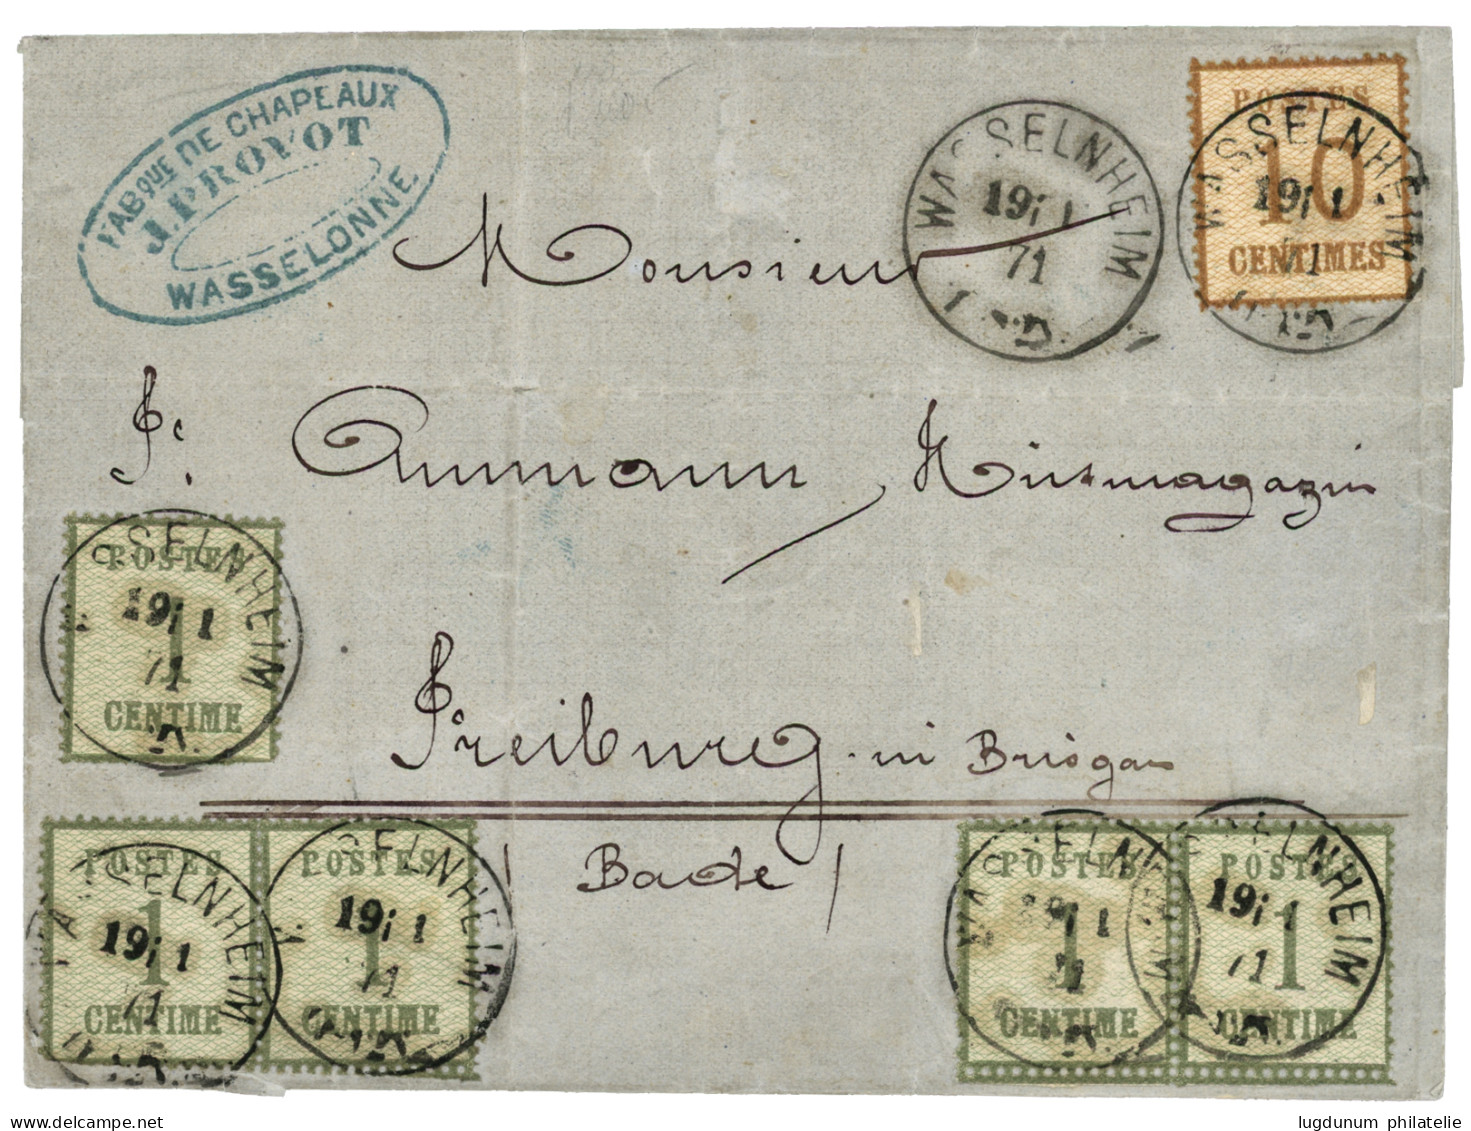 FABQUE DE CHAPEAUX
J. PROVOT
WASSELONNE
WASSELNHEIM
19 1
71
POSTES
10
CENTIMES
WASSELNHEIM
19 1
71
Monsieur
Fc. Aummann, Hutmagazin
Freiburg in Brisgau
( Bade )
POSTES
1
CENTIME
WASSELNHEIM
19 1
71
POSTES
1
CENTIME
WASSELNHEIM
19 1
71
POSTES
1
CENTIME
WASSELNHEIM
19 1
71
POSTES
1
CENTIME
WASSELNHEIM
19 1
71
POSTES
1
CENTIME
WASSELNHEIM
19 1
71
www.delcampe.net
lugdunum philatelie